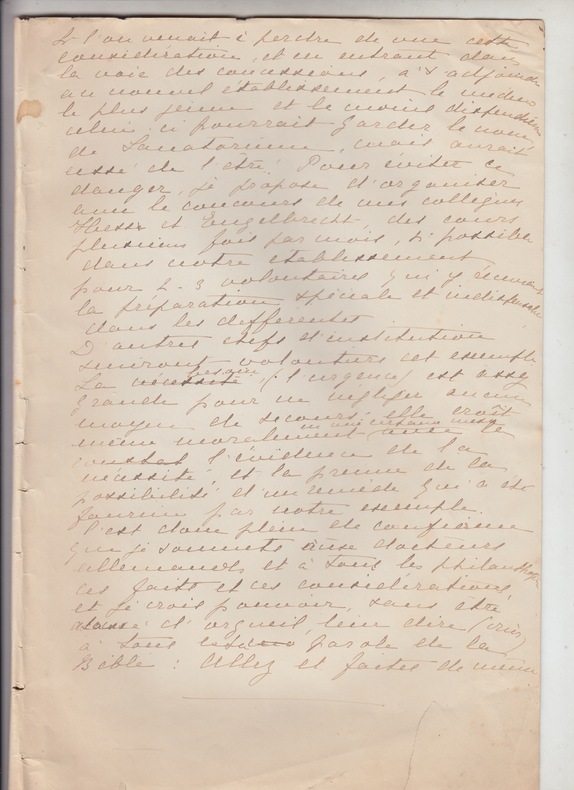 Si l'on venait à perdre de vue cette
considération, et en entrant dans
la voie des concessions, à s'adjoindre
au nouvel établissement le médecin
le plus jeune et le moins dispendieux
celui-ci pourrait garder le nom
de Sanatorium, mais aurait
cessé de l'être. Pour éviter ce
danger, je propose d'organiser
avec le concours de mes collègues
Hess et Engelbrecht des cours
plusieurs fois par mois, si possible
dans notre établissement
pour 2-3 volontaires qui y recevront
la préparation spéciale et indispensable
dans les differentes
D'autres chefs d'institution
suivront volontiers cet exemple
La nécessité besoin (l'urgence) est assez
grande pour ne négliger aucun
moyen de secours; elle croît
même moralement avec le
l'évidence de la
nécessité, et la preuve de la
possibilité d'un remède qui a été
fournie par notre exemple.
C'est donc plein de confiance
que je soumets aux docteurs
allemands et à tous les philanthropes
ces faits et ces considérations,
et je crois pouvoir, sans être
d'orgueil, leur dire (crier)
à tous parole de la
Bible : Allez et faites de même